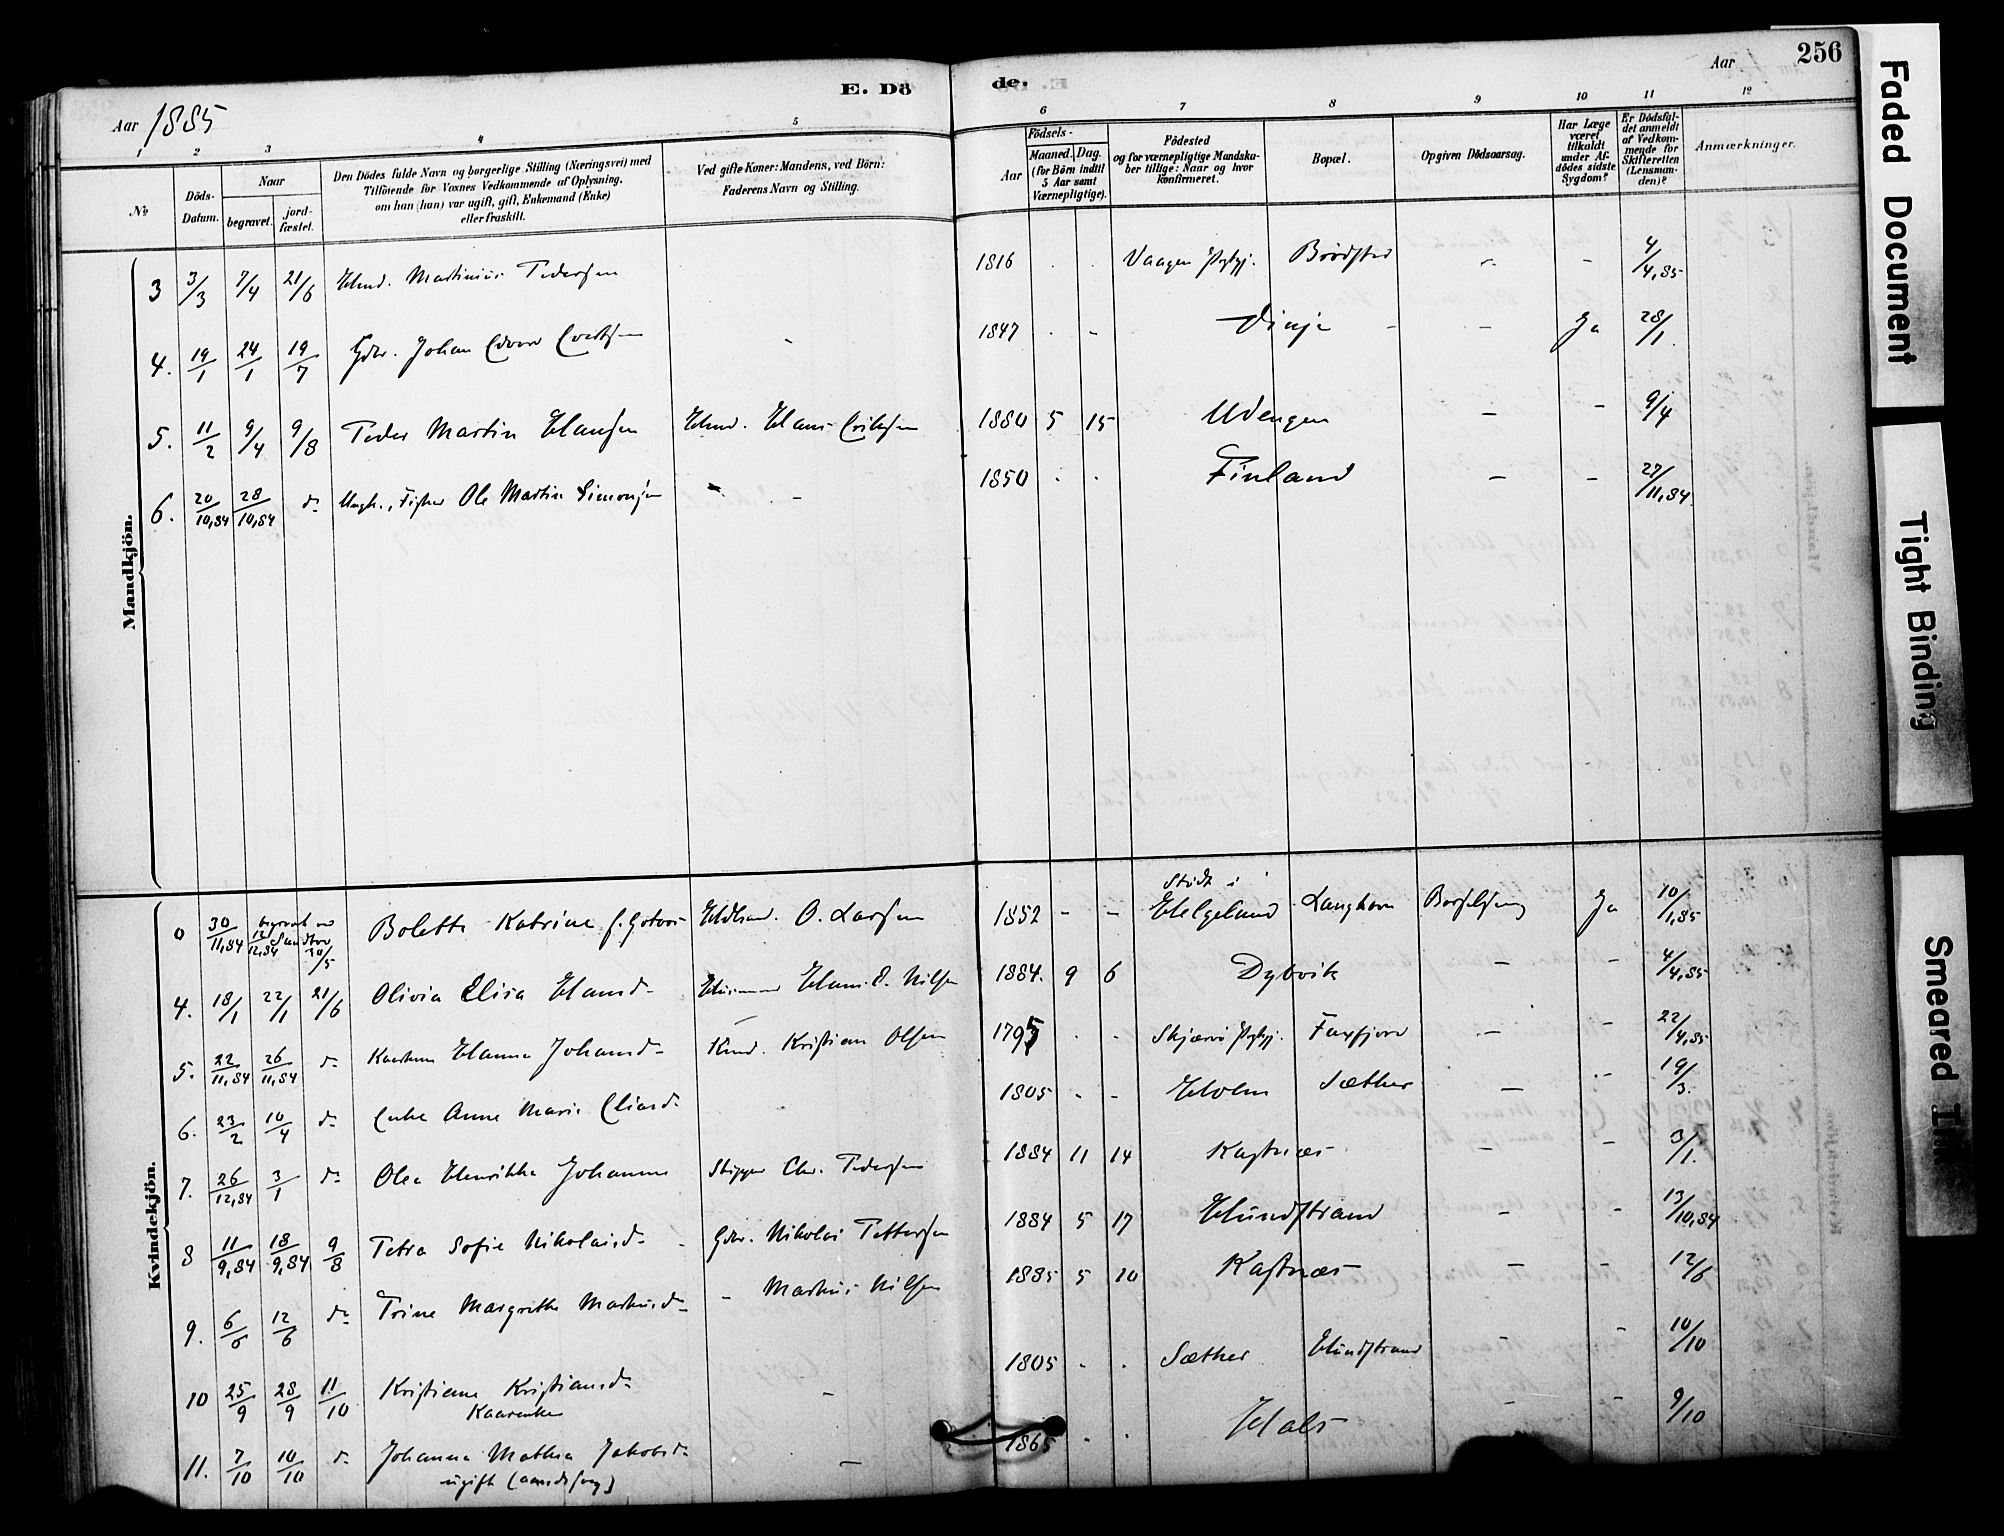 256
E. Dö de.
Aar 1885
Aar
1 2 3 4 5 6 7 8 9 10 11 12
No
Döds-Datum.
Naar
begravet.
jord-fæstet.
Den Dödes fulde Navn og borgerlige Stilling (Næringsvei) med
Tilföiende for Voxnes Vedkommende af Oplysning,
om han (hun) var ugift, gift, Enkemand (Enke)
eller fraskilt.
Ved gifte Koner: Mandens, ved Börn:
Faderens Navn og Stilling.
Födsels-
Aar
Maaned. Dag.
(for Börn indtil
5 Aar samt
Værnepligtige).
Födested
og for værnepligtige Mandska-
ber tillige: Naar og hvor
konfirmeret.
Bopæl.
Opgiven Dödsaarsag.
Har Læge
været
tilkaldt
under Af-
dödes sidste
Sygdom?
Er Dödsfal-
det anmeldt
af Vedkom-
mende for
Skifteretten
(Lensman-
den)?
Anmærkninger.
Mandkjön.
3 3/3 7/4 21/6 Martinius Pedersen 1816 . . Vaagen - - 4/4,85
4. 19/1 24/1 19/7 Gdbr. Johan - 1847 . - - - Ja 28/1
5. 11/2 9/4 9/8 Peder Martin Hansen Hans Eriksen 1880 5 15 Udengen - - 9/4
6. 20/10,84 28/10,84 do Ungk., Fisker Ole Martin Simonsen - 1850 . . Finland - - 27/11,84
Kvindekjön.
0 30/11,84 begravet 12/12,84 20/5 Bolette Katrine O. Larsen 1852 - - Stödt i Helgeland Langhavn Ja 10/1,85
4. 18/1 22/1 21/6 Olivia Elisa Hansd. Nilsen 1884. 9 6 Dybvik - 4/4,85
5. 22/11,84 26/11,84 do Hanna Johansd. Kristian Olsen 1795 . . Skjærvö - - 22/4,85
6. 23/2 10/4 do Enke Anne Marie Eliasd. 1805 . - Holm Sæther - - 19/3.
7. 26/12,84 3/1 do Olea Henrikka Johanne Skipper Chr. Pedersen 1884 11 14 Kastnæs - - 3/1.
8 11/9,84 18/9,84 9/8 Petra Sofie Nikolaisd. Gdbr. Nikolai Pettersen 1884 5 17 Hundstrand - - 13/10,84
9. 6/6 12/6 do Trine Margrethe Markusd. - Markus Nilsen 1885 5 20 Kastnæs - - 12/6
10 25/9 28/9 11/10 Kristiane Kristiansd. - 1805 . . Sæther Hundstrand - - 10/10
11. 7/10 10/10 do Johanna Mathea Jakobsd. - 1865 . . Hals - - 9/10
ugift (aandssvag)
Faded Document
Tight Binding
Smeared Ink